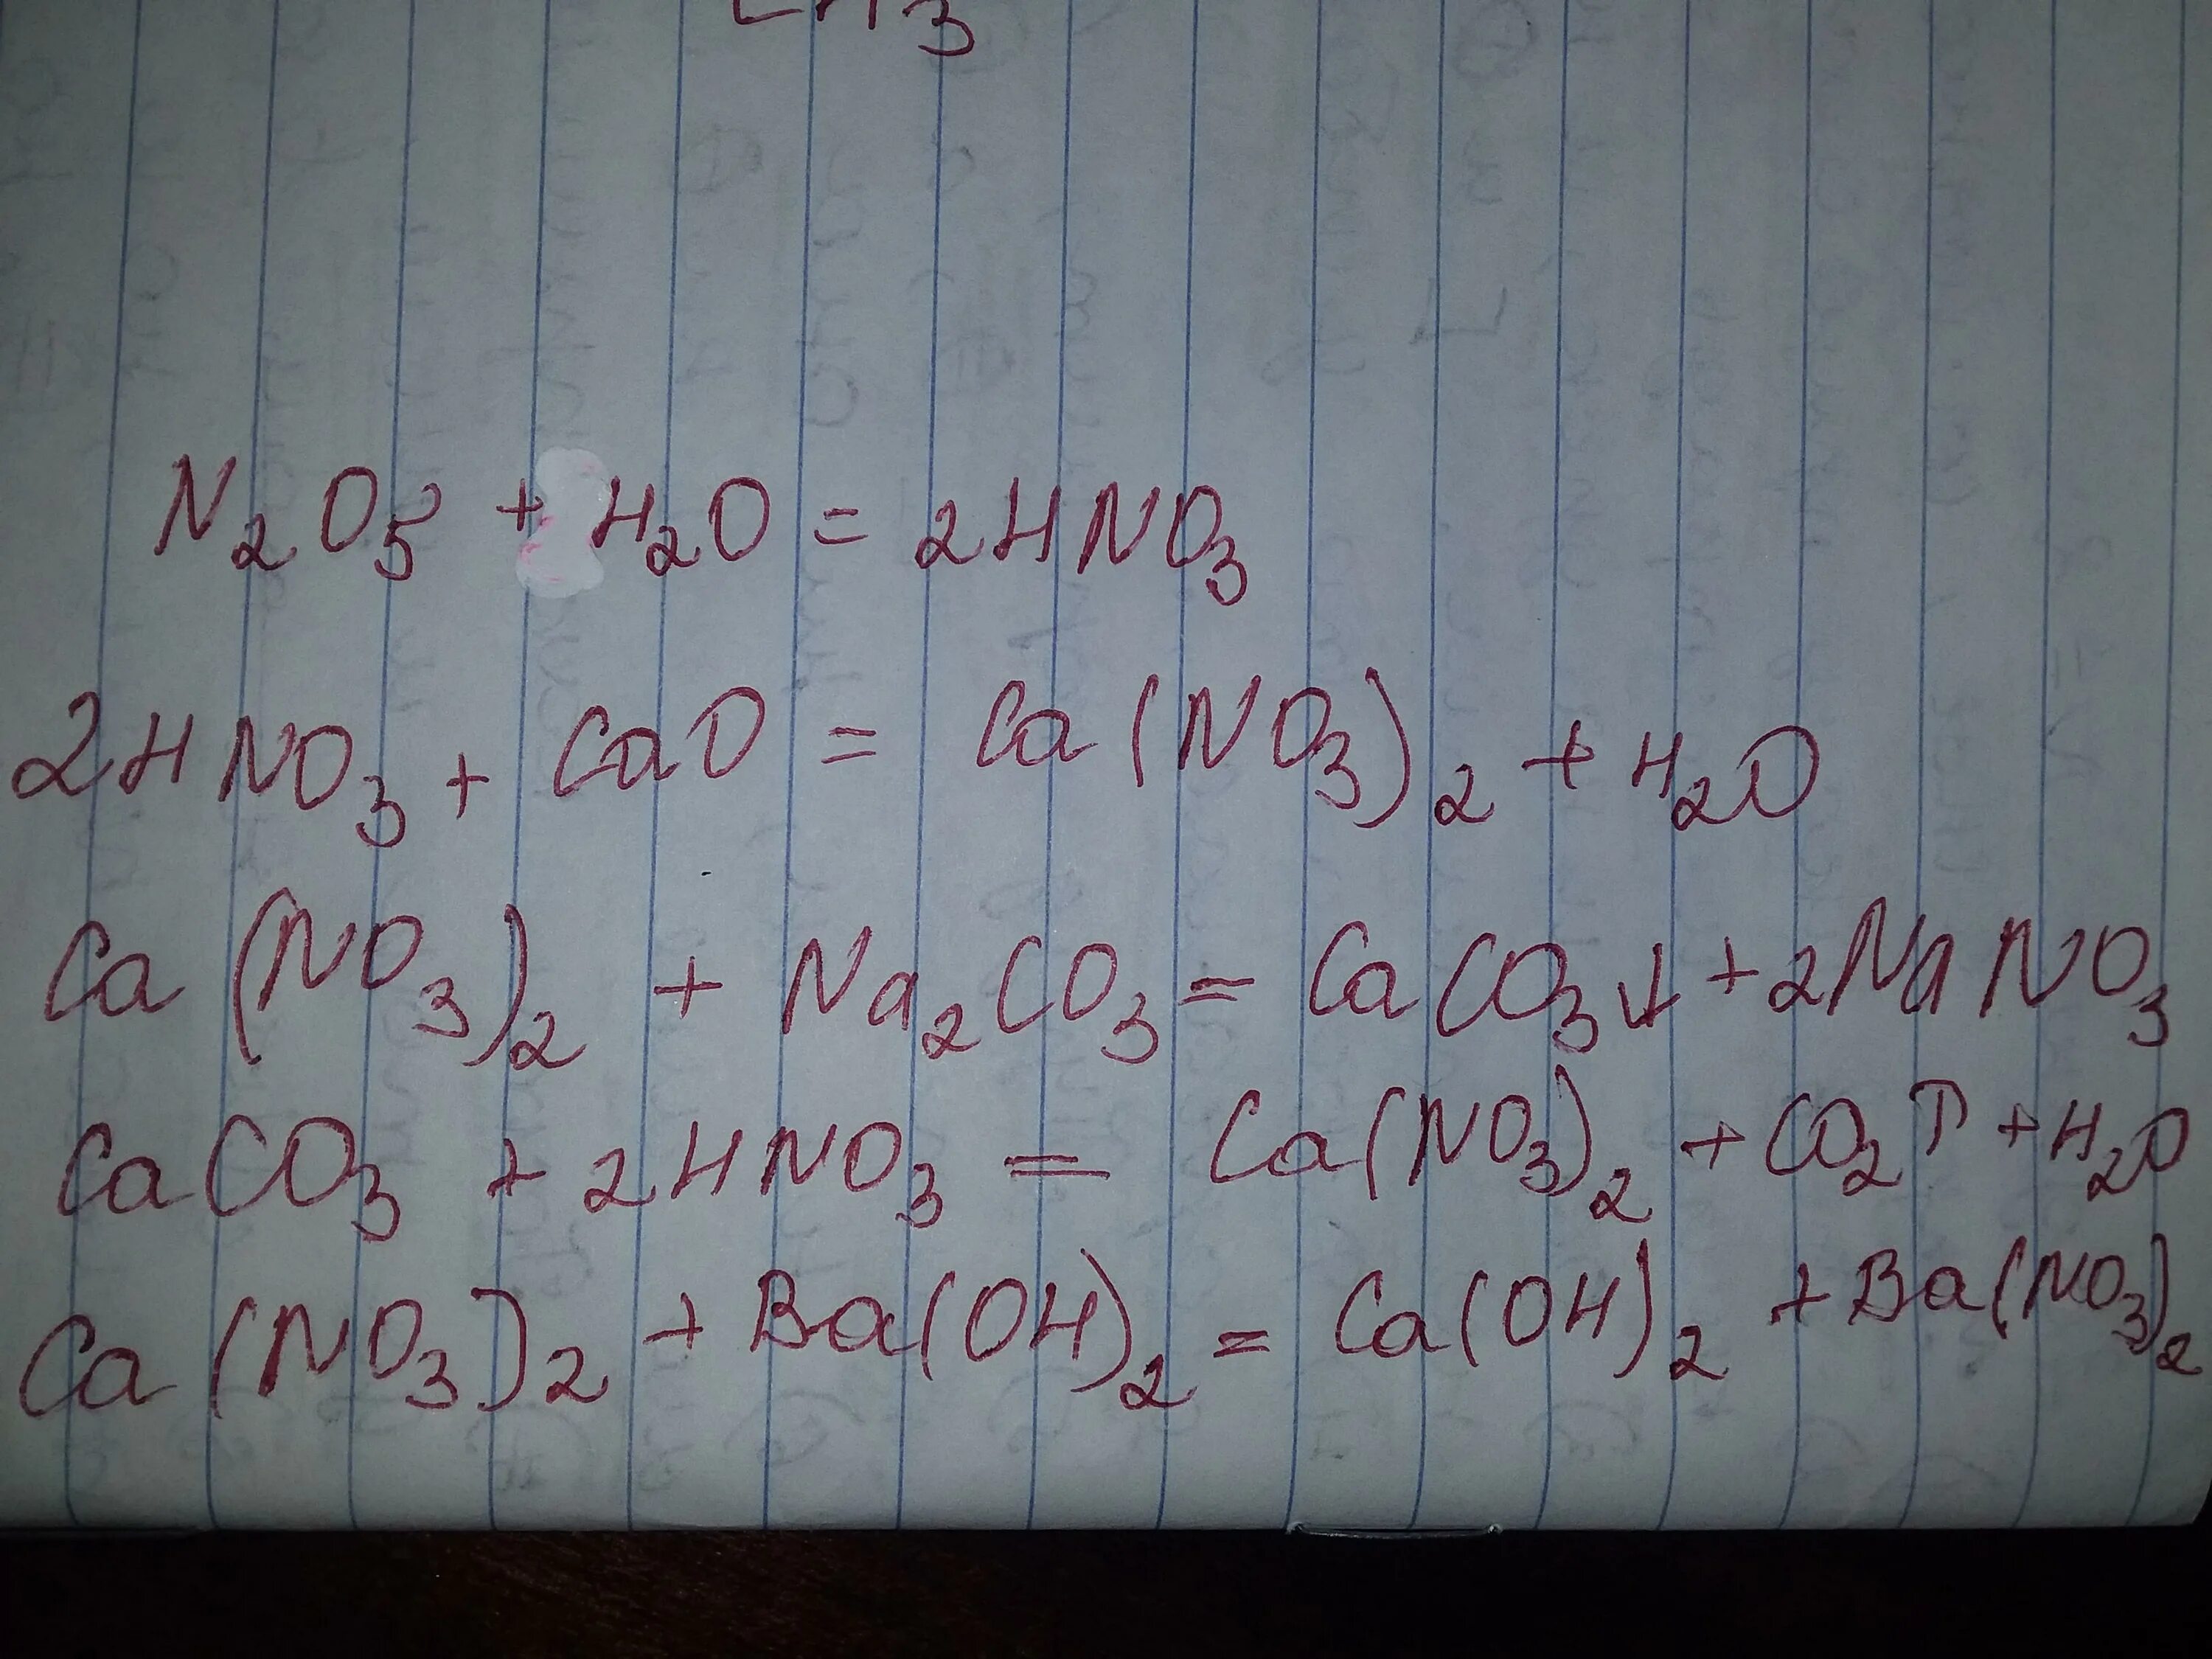 CH₃
N₂O₅ + H₂O = 2HNO₃
2HNO₃ + CaO = Ca(NO₃)₂ + H₂O
Ca(NO₃)₂ + Na₂CO₃ = CaCO₃↓ + 2NaNO₃
CaCO₃ + 2HNO₃ = Ca(NO₃)₂ + CO₂↑ + H₂O
Ca(NO₃)₂ + Ba(OH)₂ = Ca(OH)₂ + Ba(NO₃)₂